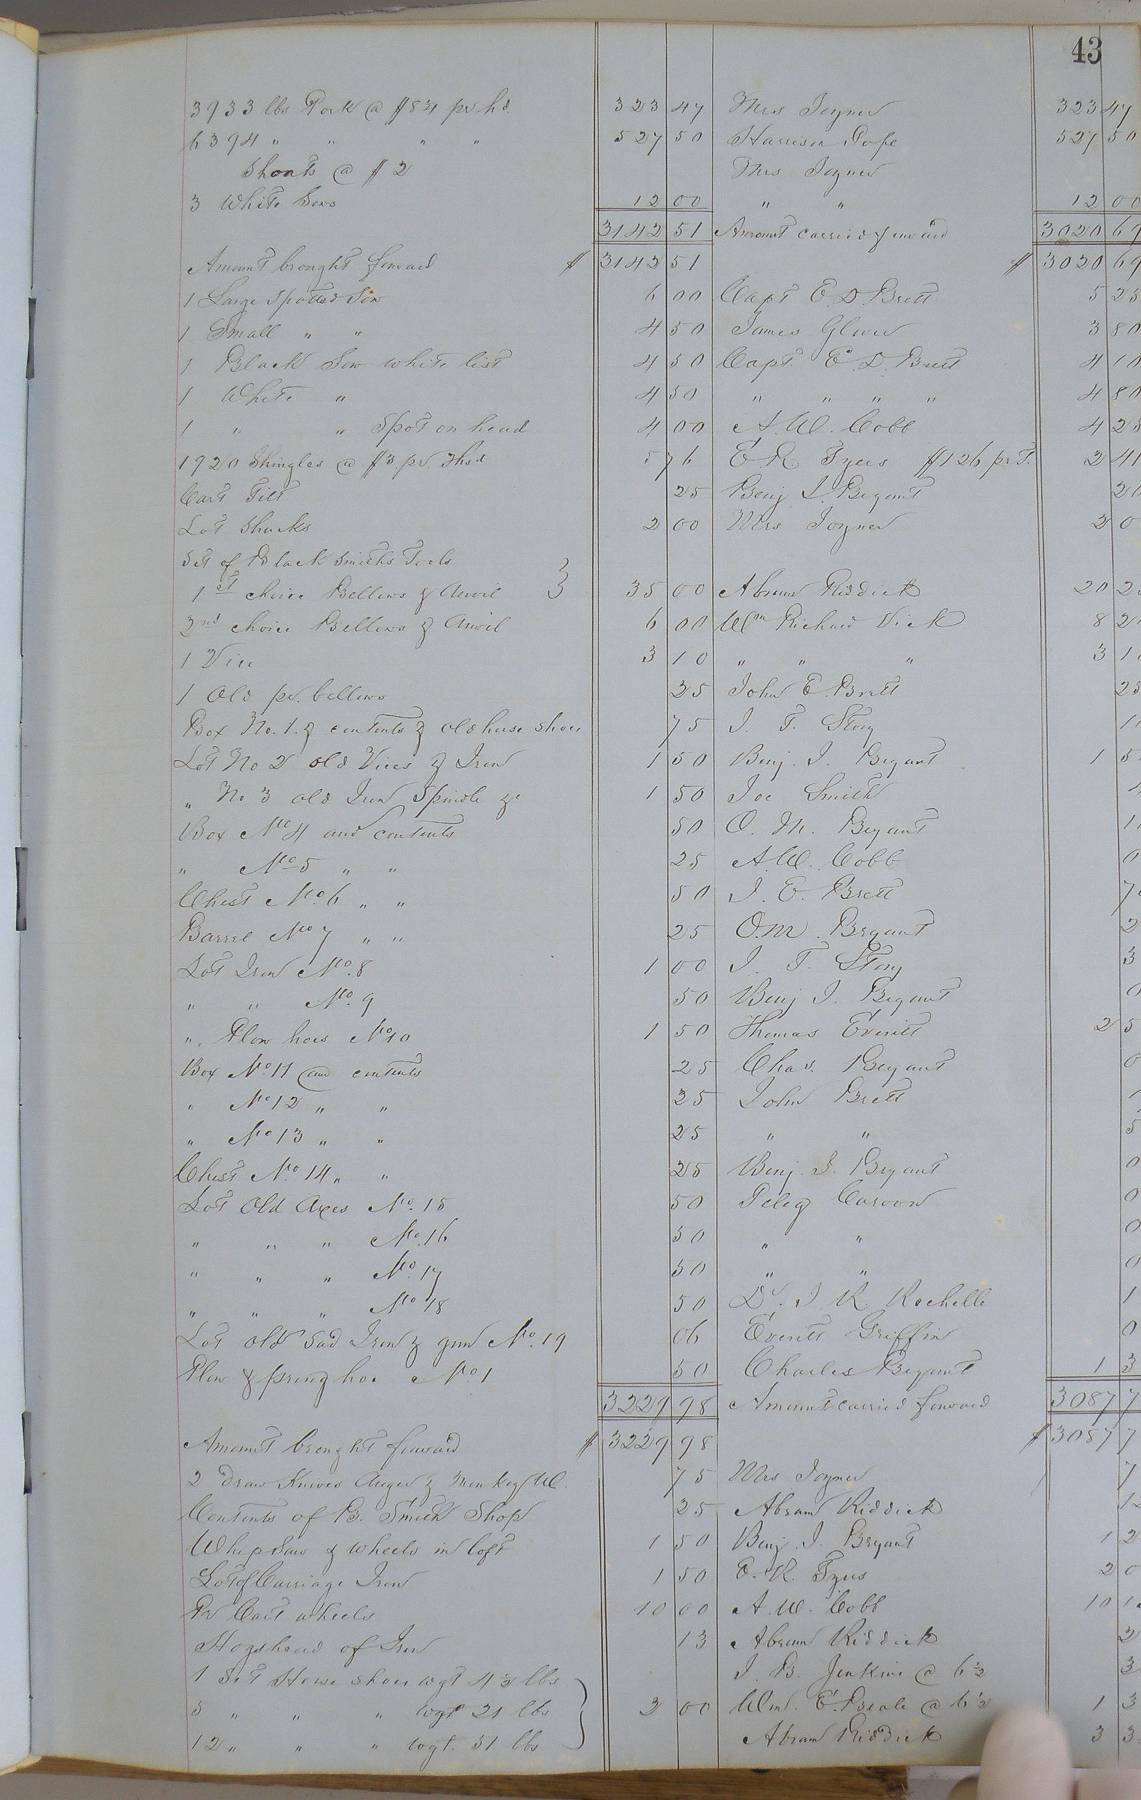 43
3933 lbs Pork @ $8¼ pr hd 323 47 Mrs Joyner 323 47
6394 " " " " 527 50 Harrison Pope 527 50
Shoats @ $2 Mrs Joyner
3 White Sows 12 00 " " 12 00
3142 51 Amount carried forward 3020 69
Amount brought forward $ 3142 51 $ 3020 69
1 Large Spotted Sow 6 00 Capt E. D. Brett 5 25
1 Small " " 4 50 James Glover 3 80
1 Black Sow white list 4 50 Capt E. D. Brett 4 10
1 White " 4 50 " " " " 4 80
1 " " Spot on head 4 00 A. W. Cobb 4 25
1920 Shingles @ $3 pr. Thsd 5 76 E. R. Tyus $1 26 pr T. 2 41
Cart Tilt 25 Benj J. Bryant 20
Lot Shucks 2 00 Mrs Joyner 2 0
Set of Black Smiths Tools
1st choice Bellows & Anvil 35 00 Abram Riddick 20 2
2nd choice Bellows & Anvil 6 00 Wm Richard Vick 8 2
1 Vice 3 10 " " " 3 1
1 Old pr. bellows 25 John E. Brett 25
Box No. 1. & contents & old horse shoes 75 J. T. Story 1
Lot No 2 old Vices & Iron 1 50 Benj. J. Bryant 1 5
" No 3 old Iron Spindle &c 1 50 Joe Smith
Box No 4 and contents 50 O. M. Bryant 1
" No 5 " " 25 A. W. Cobb 0
Chest No. 6 " " 50 J. E. Brett 7
Barrel No 7 " " 25 O. M. Bryant 2
Lot Iron No. 8 1 00 J. T. Story 3
" " No. 9 50 Benj J. Bryant 0
" Plow hoes No 10 1 50 Thomas Everitt 2 5
Box No 11 and contents 25 Chas. Bryant 0
" No 12 " " 25 John Brett
" No 13 " " 25 " " 5
Chest No. 14 " " 25 Benj. J. Bryant 0
Lot Old Axes No. 15 50 Peleg Carson 0
" " " No. 16 50 " " 0
" " " No. 17 50 " " 0
" " " No 18 50 Dr. J R Rochelle 1
Lot old Sad Iron & gun No. 19 06 Everett Griffin 0
Plow & spring hoe No. 1 50 Charles Bryant 1 3
3229 98 Amount carried forward 3087 7
Amount brought forward $ 3229 98 $ 3087 7
2 Draw Knives Auger & Monkey W. 75 Mrs Joyner 7
Contents of B. Smith Shop 25 Abram Riddick 12
Whip Saw & wheels in loft 1 50 Benj. J. Bryant 1 2
Lot of Carriage Iron 1 50 E. R. Tyus 2 0
Pr Cart wheels 10 00 A. W. Cobb 10 1
Hogshead of Iron 13 Abram Riddick 2
1 Set Horse shoes wgt 4½ lbs J. B. Jenkins @ 6½ 3
5 " " " wgt 21 lbs 2 00 Wm. E. Beale @ 6½ 1 3
12 " " " wgt. 51 lbs Abram Riddick 3 3